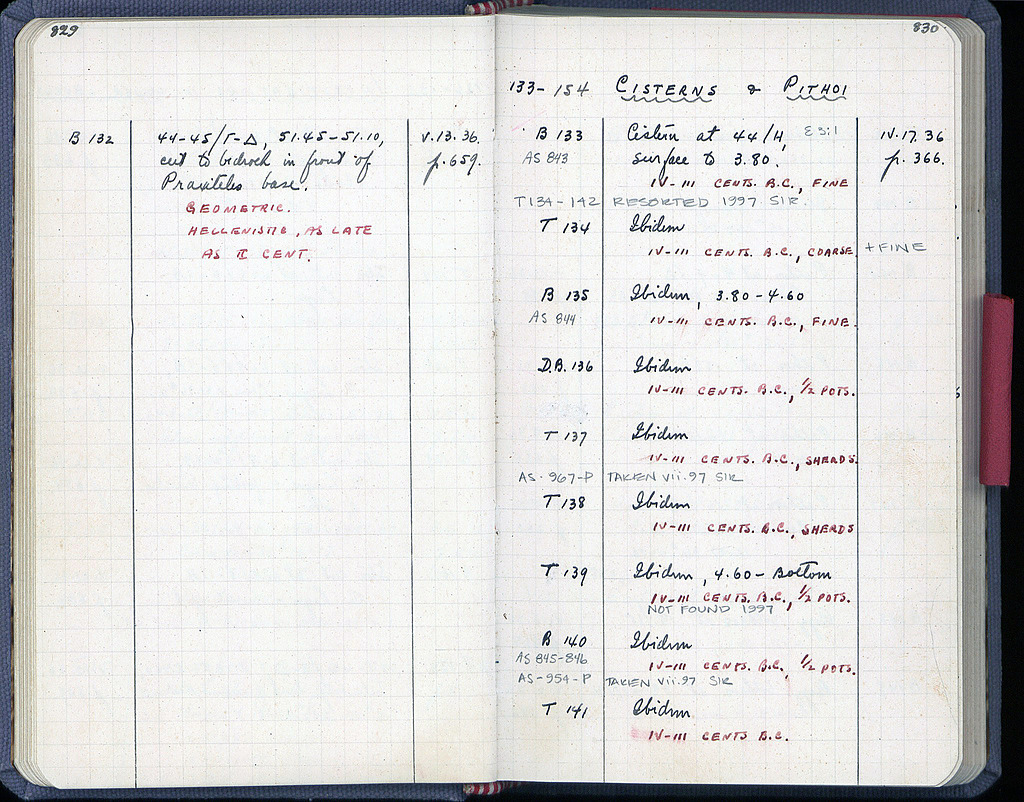 829
B 132 44-45/Γ-Δ, 51.45-51.10, V.13.36.
cut to bedrock in front of p. 659.
Praxiteles base.
GEOMETRIC.
HELLENISTIC, AS LATE
AS II CENT.
830
133-154 CISTERNS & PITHOI
B 133 Cistern at 44/Δ, E 3:1 IV.17.36
AS 843 surface to 3.80. p. 366.
IV-III CENTS. B.C., FINE
T134-142 RESORTED 1997 SIR.
T 134 Ibidem
IV-III CENTS. B.C., COARSE. + FINE
B 135 Ibidem, 3.80-4.60
AS 844 IV-III CENTS. B.C., FINE.
D.B. 136 Ibidem
IV-III CENTS. B.C., 1/2 POTS.
T 137 Ibidem
IV-III CENTS. B.C., SHERDS.
AS-967-P TAKEN VII.97 SIR
T 138 Ibidem
IV-III CENTS. B.C., SHERDS
T 139 Ibidem, 4.60-Bottom
IV-III CENTS. B.C., 1/2 POTS.
NOT FOUND 1997
B 140 Ibidem
AS 845-846 IV-III CENTS. B.C., 1/2 POTS.
AS-954-P TAKEN VII.97 SIR
T 141 Ibidem
IV-III CENTS B.C.